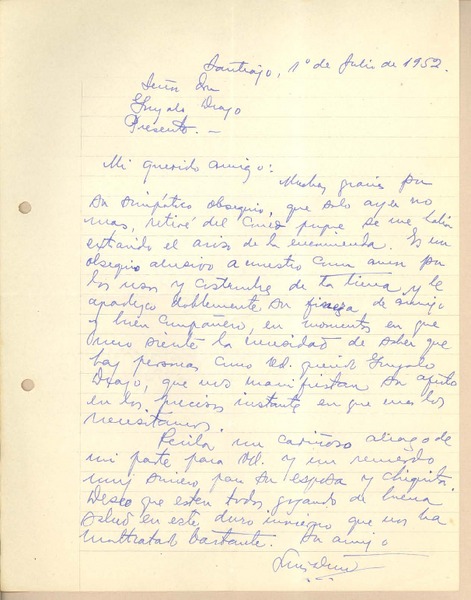 Santiago, 1º de Julio de 1952.
Señor Don
Gonzalo Drago
Presente. —
Mi querido amigo:
Muchas gracias por
su simpático obsequio, que solo ayer no
mas, retiré del Correo porque se me había
extraviado el aviso de la encomienda. Es un
obsequio alusivo a nuestro común amor por
los usos y costumbres de la tierra y le
agradezco doblemente su fineza de amigo
y buen compañero, en momentos en que
uno siente la necesidad de saber que
hay personas como Ud. querido Gonzalo
Drago, que nos manifiestan su afecto
en los precisos instantes en que mas los
necesitamos.
Reciba un cariñoso abrazo de
mi parte para Ud. y un recuerdo
muy sincero para su esposa y chiquitos.
Deseo que esten todos gozando de buena
salud en este duro invierno que nos ha
maltratado bastante. Su amigo
Luis